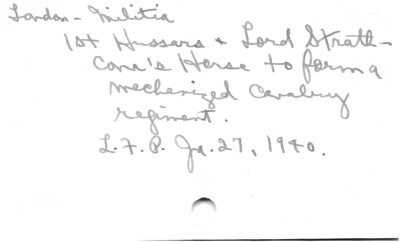 London - Militia
1st Hussars & Lord Strath-
cona's Horse to form a
mechanized cavalry
regiment.
L.F.P. Ja. 27, 1940.